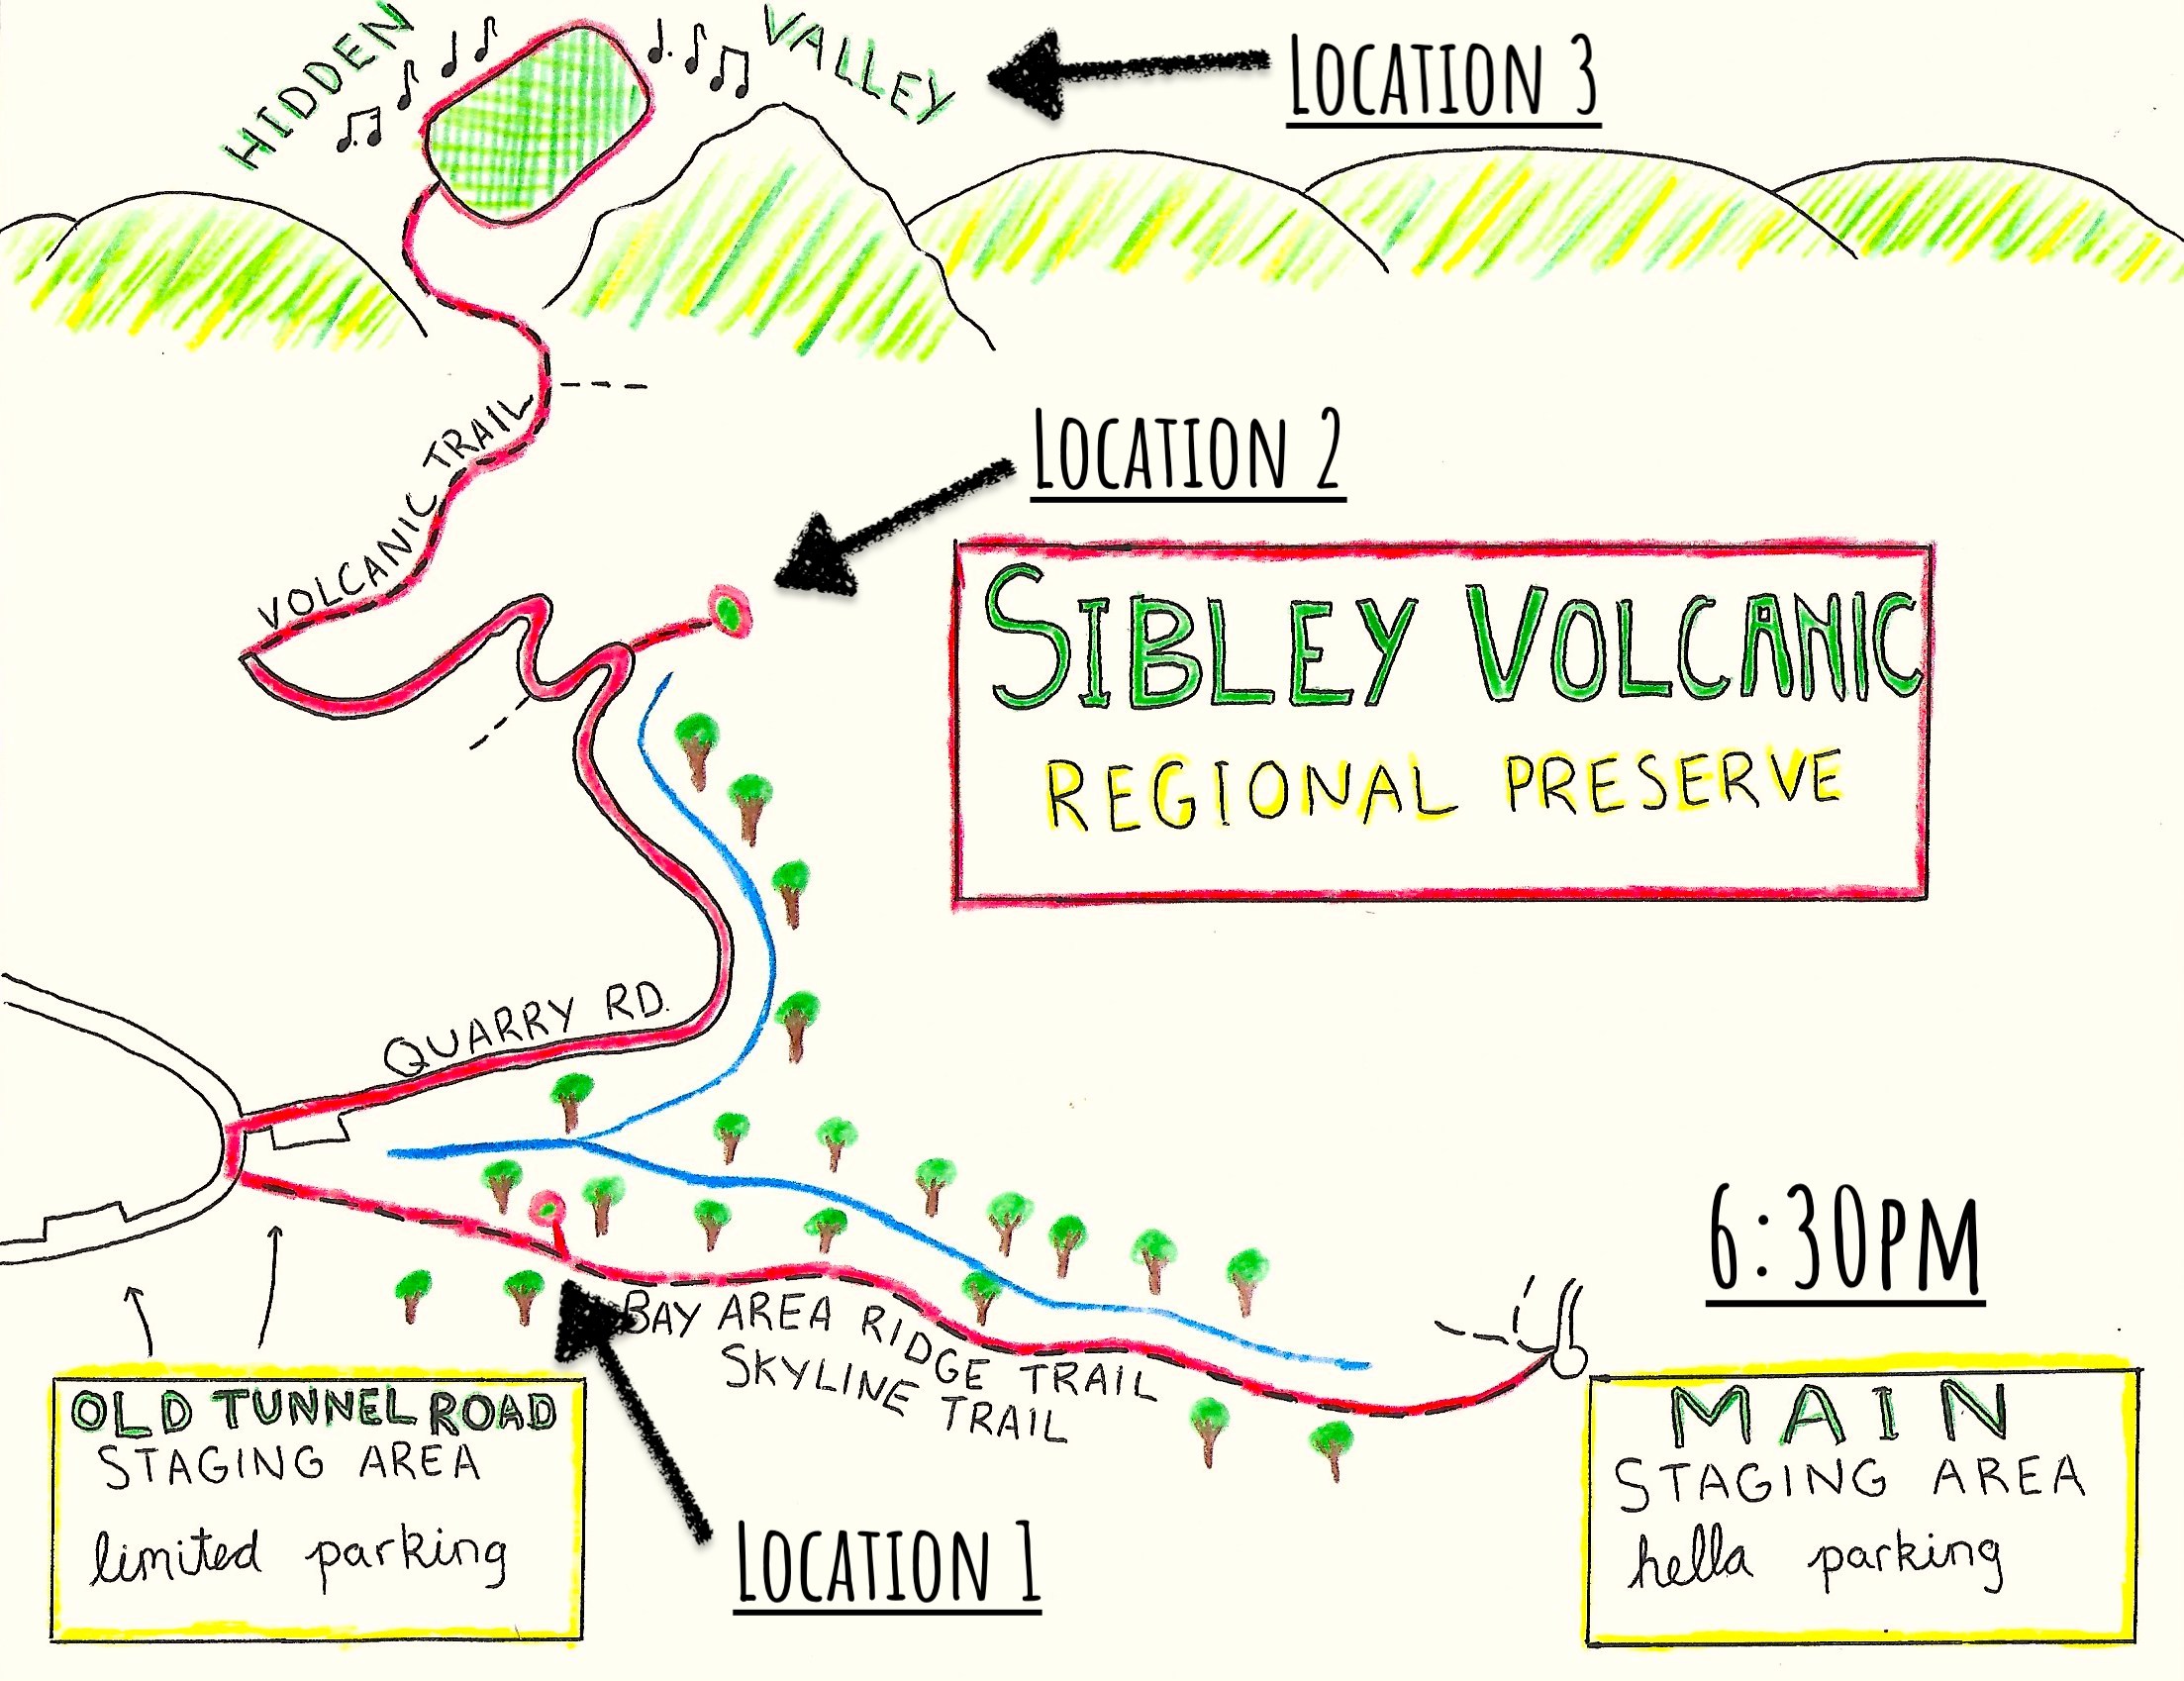 HIDDEN VALLEY
LOCATION 3
VOLCANIC TRAIL
LOCATION 2
SIBLEY VOLCANIC
REGIONAL PRESERVE
QUARRY RD.
6:30PM
BAY AREA RIDGE TRAIL
SKYLINE TRAIL
OLD TUNNEL ROAD
STAGING AREA
limited parking
LOCATION 1
MAIN
STAGING AREA
hella parking